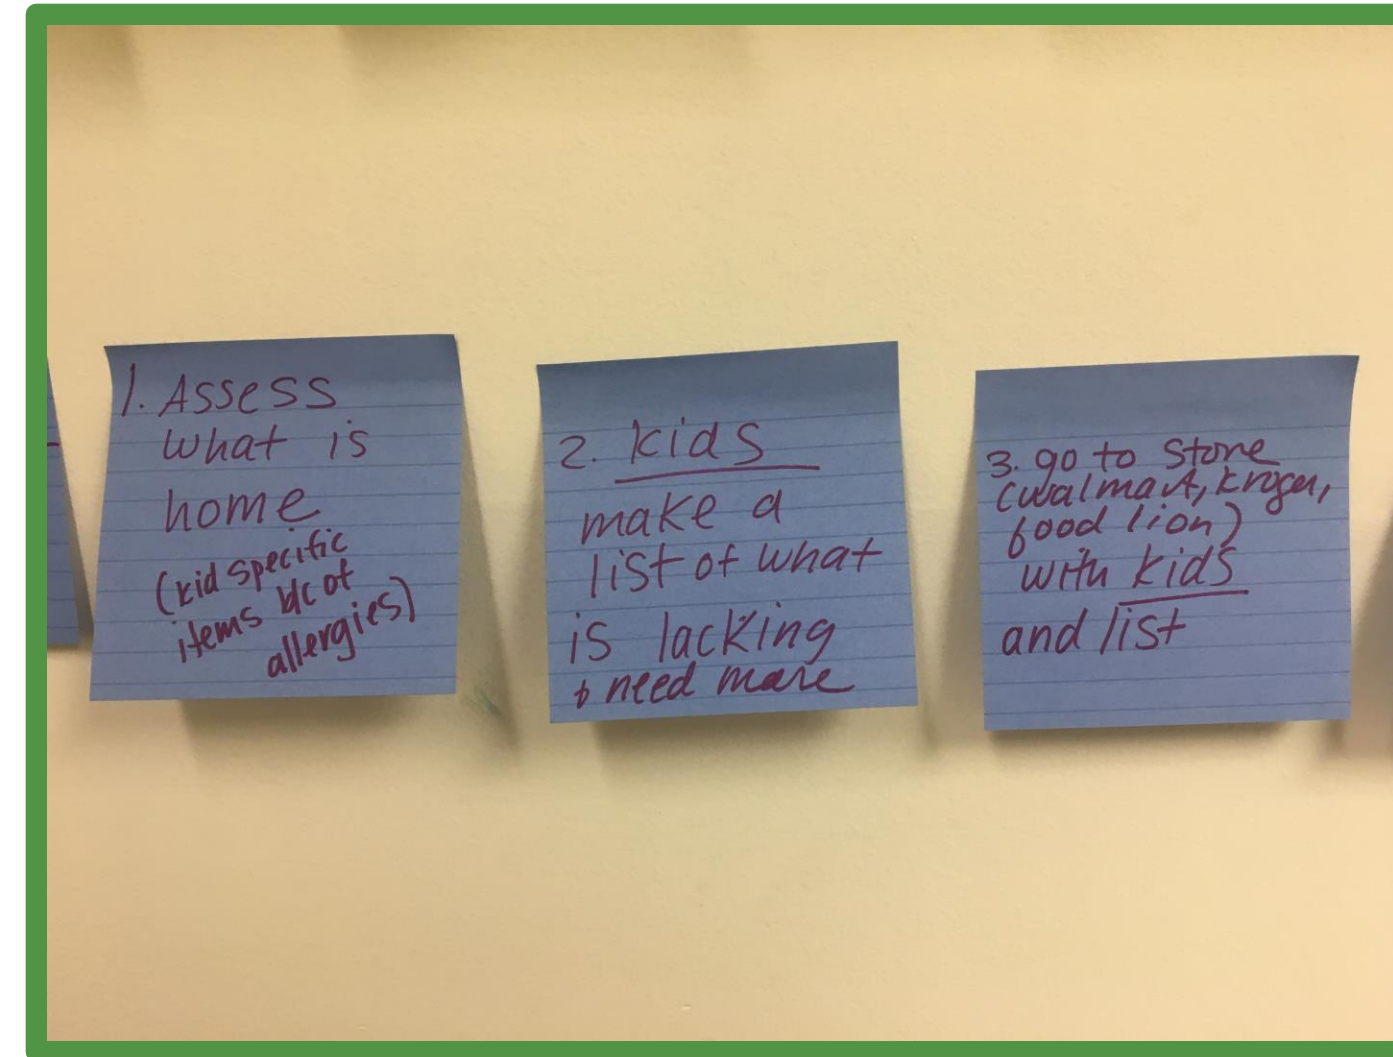 1. Assess
what is
home
(kid specific
items b/c of
allergies)
2. kids
make a
list of what
is lacking
& need more
3. go to store
(walmart, kroger,
food lion)
with kids
and list